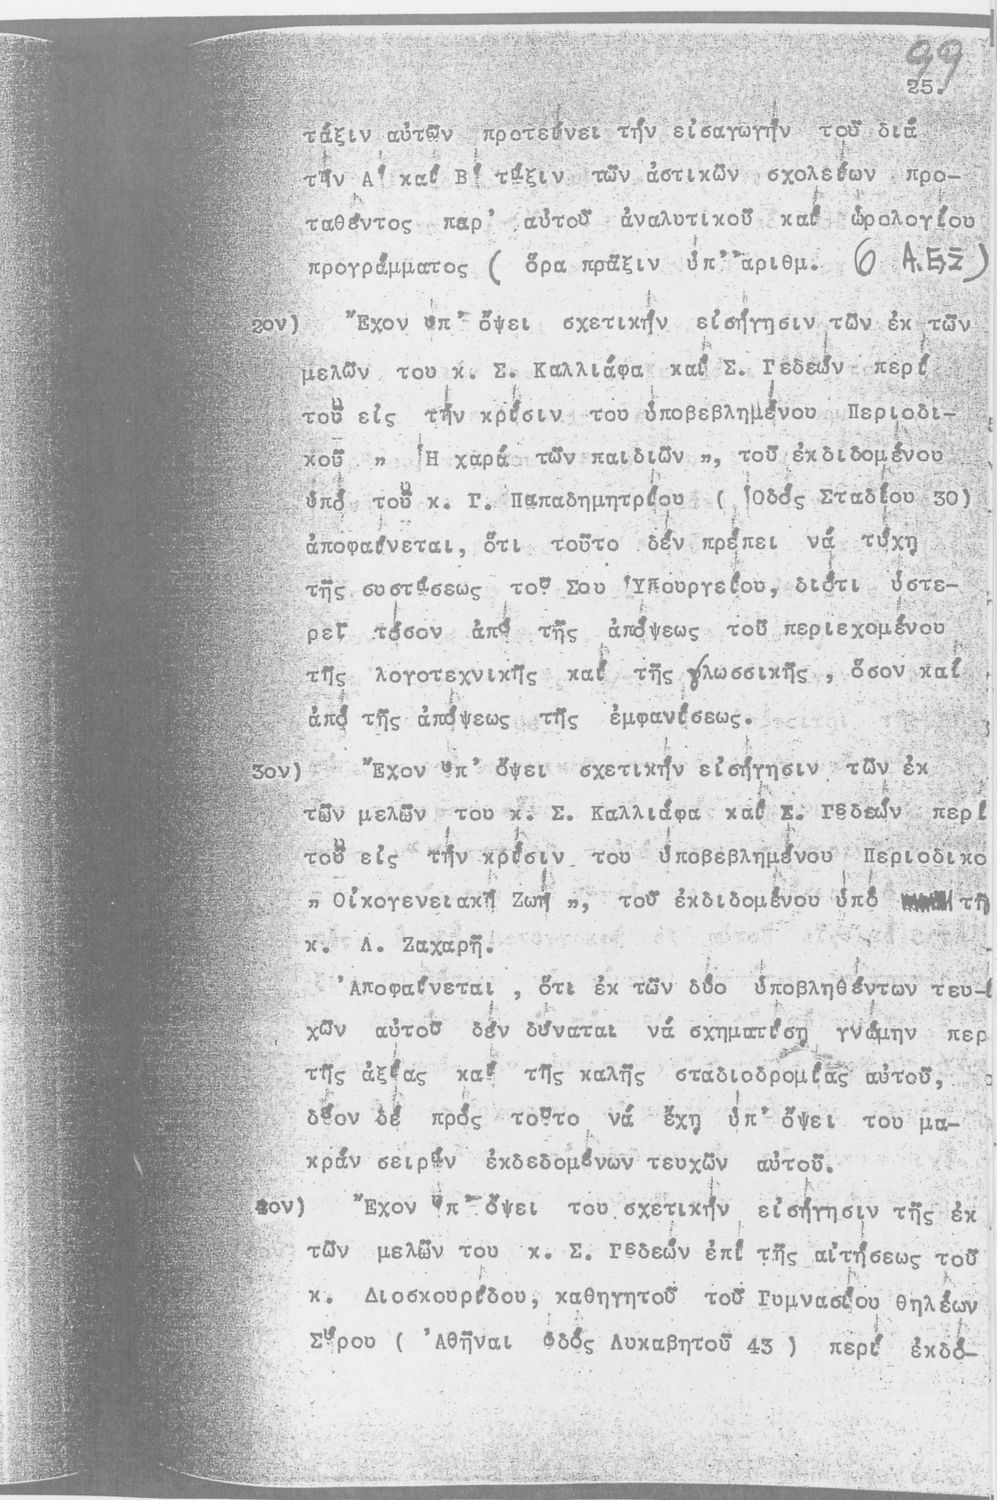 99
25.
τάξιν αὐτῶν προτείνει τήν εἰσαγωγήν τοῦ διά
τήν Α΄ καί Β΄ τάξιν τῶν ἀστικῶν σχολείων προ-
ταθέντος παρ' αὐτοῦ ἀναλυτικοῦ καί ὡρολογίου
προγράμματος ( ὅρα πρᾶξιν ὑπ' ἀριθμ. 6 Α.Ε.Σ )
2ον) Ἔχον ὑπ' ὄψει σχετικήν εἰσήγησιν τῶν ἐκ τῶν
μελῶν του κ. Σ. Καλλιάφα καί Σ. Γεδεών περί
τοῦ εἰς τήν κρίσιν του ὑποβεβλημένου Περιοδι-
κοῦ " Ἡ χαρά τῶν παιδιῶν ", τοῦ ἐκδιδομένου
ὑπό τοῦ κ. Γ. Παπαδημητρίου ( Ὁδός Σταδίου 30)
ἀποφαίνεται, ὅτι τοῦτο δέν πρέπει νά τύχῃ
τῆς συστάσεως τοῦ Σου Ὑπουργείου, διότι ὑστε-
ρεῖ τόσον ἀπό τῆς ἀπόψεως τοῦ περιεχομένου
τῆς λογοτεχνικῆς καί τῆς γλωσσικῆς , ὅσον καί
ἀπό τῆς ἀπόψεως τῆς ἐμφανίσεως.
3ον) Ἔχον ὑπ' ὄψει σχετικήν εἰσήγησιν τῶν ἐκ
τῶν μελῶν του κ. Σ. Καλλιάφα καί Σ. Γεδεών περί
τοῦ εἰς τήν κρίσιν του ὑποβεβλημένου Περιοδικο
" Οἰκογενειακή Ζωή ", τοῦ ἐκδιδομένου ὑπό τῆ
κ. Λ. Ζαχαρῆ.
Ἀποφαίνεται , ὅτι ἐκ τῶν δύο ὑποβληθέντων τευ-
χῶν αὐτοῦ δέν δύναται νά σχηματίσῃ γνώμην περ
τῆς ἀξίας καί τῆς καλῆς σταδιοδρομίας αὐτοῦ,
δέον δέ πρός τοῦτο νά ἔχῃ ὑπ' ὄψει του μα-
κράν σειράν ἐκδεδομένων τευχῶν αὐτοῦ.
4ον) Ἔχον ὑπ' ὄψει του σχετικήν εἰσήγησιν τῆς ἐκ
τῶν μελῶν του κ. Σ. Γεδεών ἐπί τῆς αἰτήσεως τοῦ
κ. Διοσκουρίδου, καθηγητοῦ τοῦ Γυμνασίου θηλέων
Σύρου ( Ἀθῆναι ὁδός Λυκαβητοῦ 43 ) περί ἐκδό-